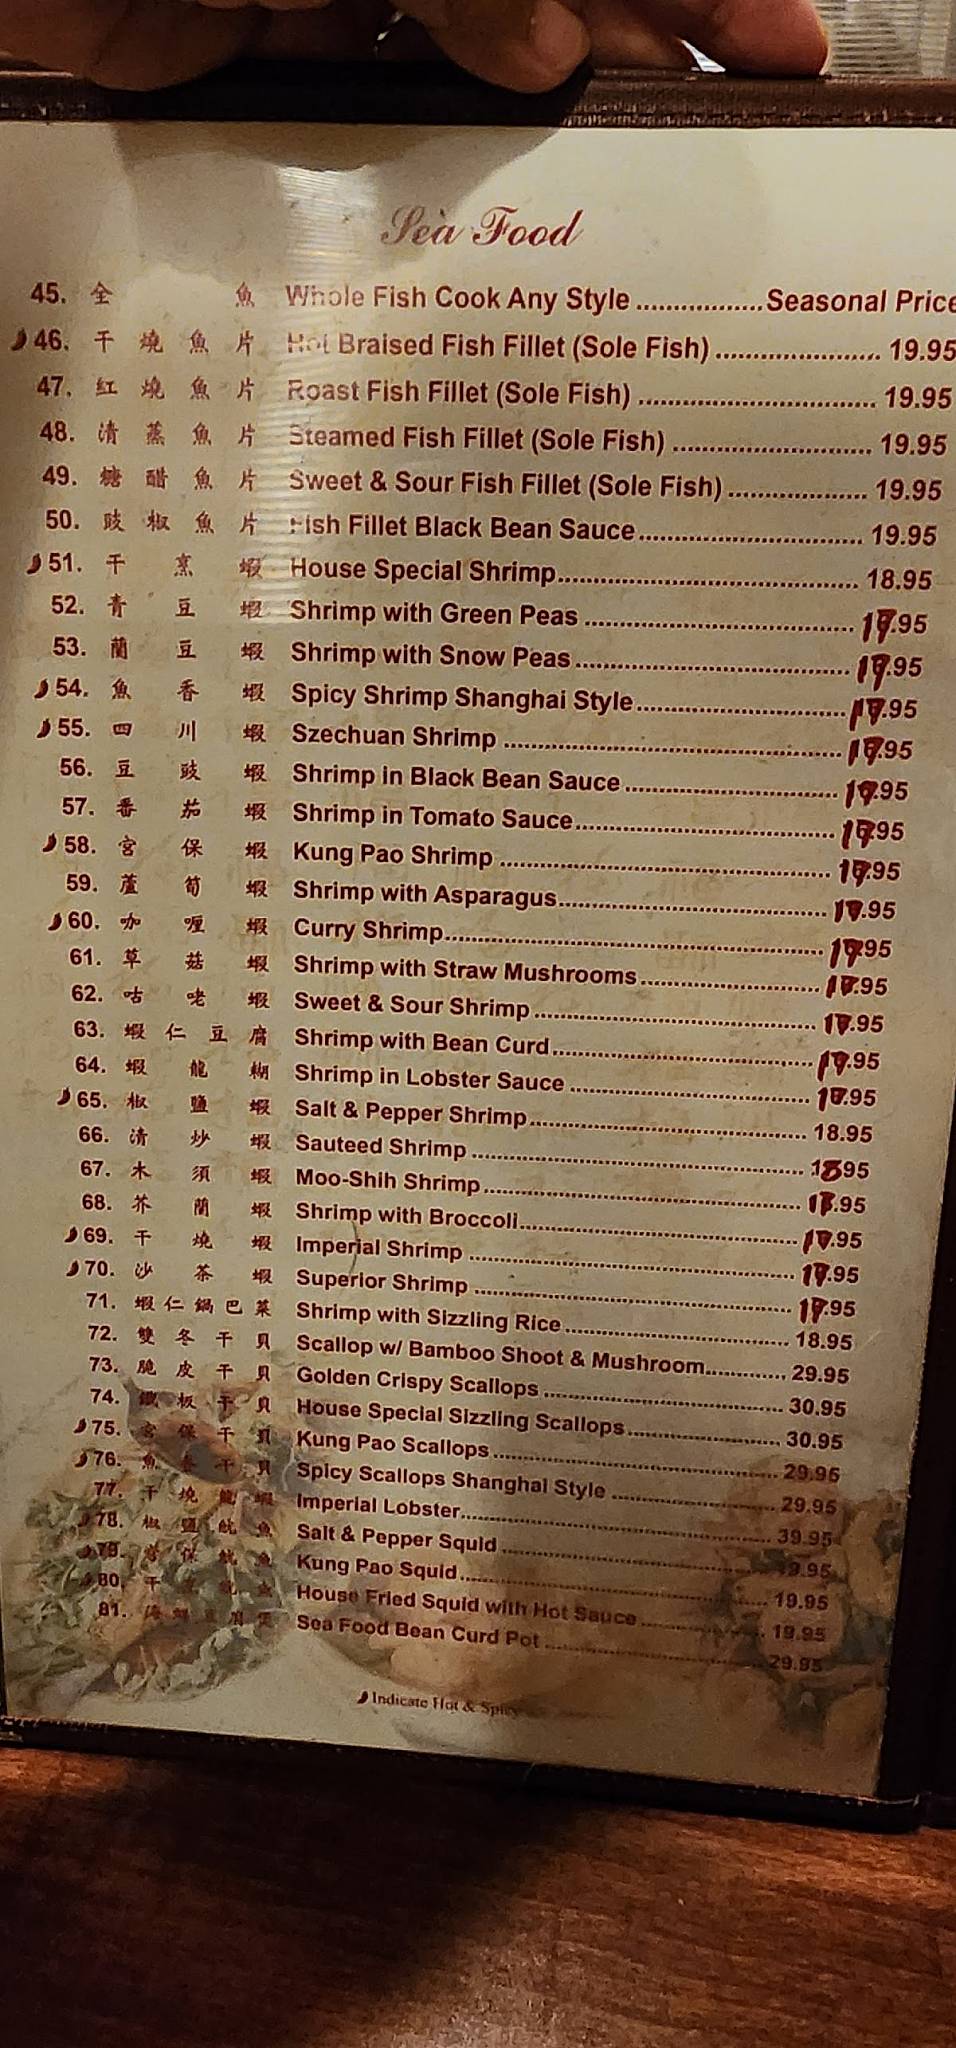 Sea Food
45. 全魚 Whole Fish Cook Any Style ................. Seasonal Price
46. 干燒魚片 Hot Braised Fish Fillet (Sole Fish) ...................... 19.95
47. 紅燒魚片 Roast Fish Fillet (Sole Fish) ................................ 19.95
48. 清蒸魚片 Steamed Fish Fillet (Sole Fish) ........................... 19.95
49. 糖醋魚片 Sweet & Sour Fish Fillet (Sole Fish) ................... 19.95
50. 豉椒魚片 Fish Fillet Black Bean Sauce............................... 19.95
51. 干烹蝦 House Special Shrimp.......................................... 18.95
52. 青豆蝦 Shrimp with Green Peas ......................................
53. 蘭豆蝦 Shrimp with Snow Peas .......................................
54. 魚香蝦 Spicy Shrimp Shanghai Style...............................
55. 四川蝦 Szechuan Shrimp .................................................
56. 豆豉蝦 Shrimp in Black Bean Sauce ...............................
57. 番茄蝦 Shrimp in Tomato Sauce......................................
58. 宮保蝦 Kung Pao Shrimp .................................................
59. 蘆筍蝦 Shrimp with Asparagus........................................
60. 咖喱蝦 Curry Shrimp.........................................................
61. 草菇蝦 Shrimp with Straw Mushrooms ..........................
62. 咕咾蝦 Sweet & Sour Shrimp ...........................................
63. 蝦仁豆腐 Shrimp with Bean Curd........................................
64. 蝦龍糊 Shrimp in Lobster Sauce .....................................
65. 椒鹽蝦 Salt & Pepper Shrimp........................................... 18.95
66. 清炒蝦 Sauteed Shrimp ....................................................
67. 木須蝦 Moo-Shih Shrimp..................................................
68. 芥蘭蝦 Shrimp with Broccoli............................................
69. 干燒蝦 Imperial Shrimp ....................................................
70. 沙茶蝦 Superior Shrimp ...................................................
71. 蝦仁鍋巴菜 Shrimp with Sizzling Rice .................................... 18.95
72. 雙冬干貝 Scallop w/ Bamboo Shoot & Mushroom............. 29.95
73. 脆皮干貝 Golden Crispy Scallops ....................................... 30.95
74. 鐵板干貝 House Special Sizzling Scallops......................... 30.95
75. 宮保干貝 Kung Pao Scallops ............................................... 29.95
76. 魚香干貝 Spicy Scallops Shanghai Style ........................... 29.95
77. 干燒龍蝦 Imperial Lobster..................................................... 39.95
78. 椒鹽魷魚 Salt & Pepper Squid ............................................. 19.95
79. 宮保魷魚 Kung Pao Squid..................................................... 19.95
80. House Fried Squid with Hot Sauce ..................... 19.95
81. 海鮮豆腐煲 Sea Food Bean Curd Pot ..................................... 29.95
Indicate Hot & Spicy